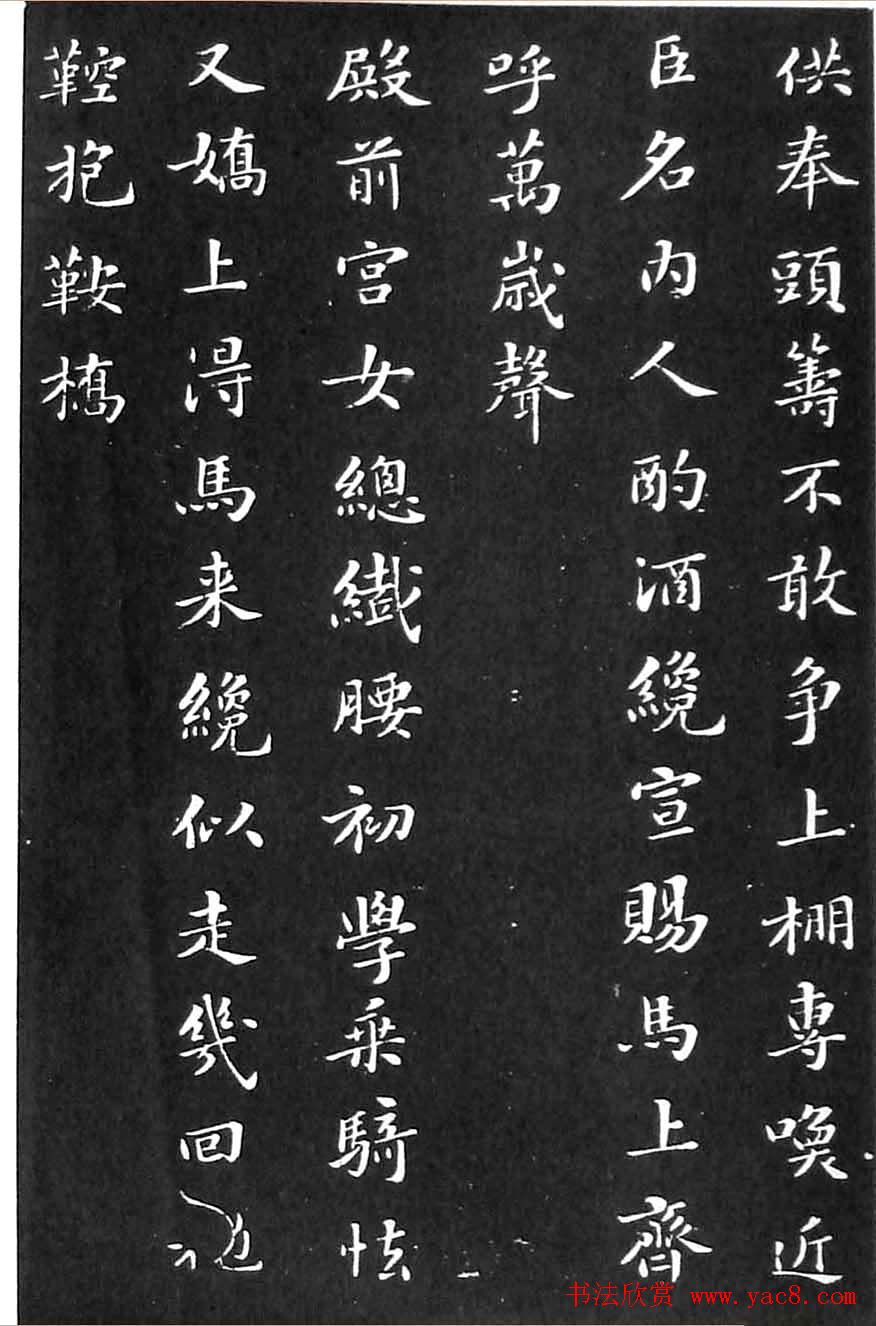 供奉頭籌不敢争上棚專喚近
臣名内人酌酒纔宣賜馬上齊
呼萬歲聲
殿前宫女總纖腰初學乗騎怯
又嬌上淂馬来纔似走幾回
鞚抱鞍橋
书法欣赏 www.yac8.com